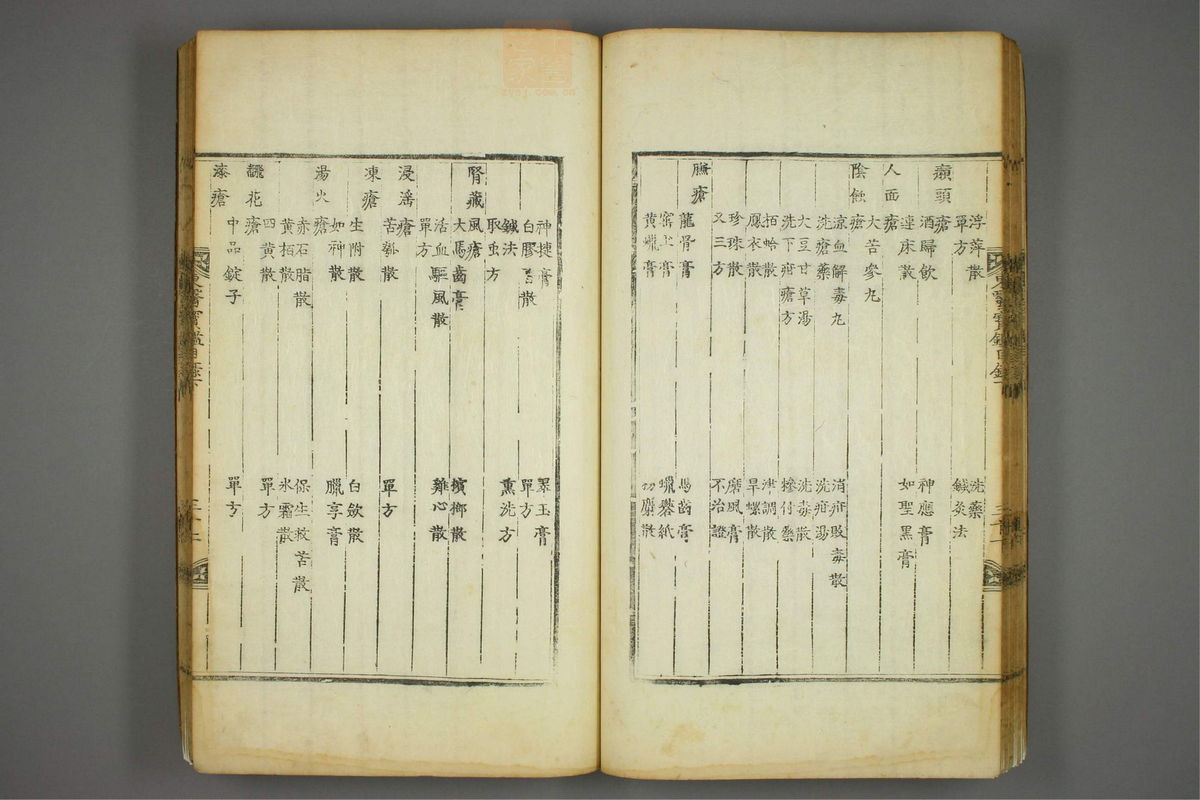 浮萍散 洗藥
單方 鍼灸法
癩頭瘡
酒歸飮 神應膏
連床散 如聖黑膏
人面瘡
大苦參丸
陰蝕瘡
凉血解毒丸 消疳敗毒散
洗瘡藥 洗疳湯
大豆甘草湯 洗毒散
洗下疳瘡方 摻付藥
栢蛤散 津調散
鳳衣散 旱螺散
珍珠散 磨風膏
又三方 不治證
臁瘡
龍骨膏 馬齒膏
窑土膏 蠟礬紙
黃蠟膏 麝散
神捷膏 翠玉膏
白膠香散 單方
鍼法 熏洗方
取虫方
腎藏風瘡
大馬齒膏 檳榔散
活血驅風散 雞心散
單方
浸淫瘡
苦瓠散 單方
凍瘡
生附散 白斂散
如神散 臘享膏
湯火瘡
赤石脂散 保生救苦散
黃栢散 氷霜散
四黃散 單方
飜花瘡
中品錠子 單方
漆瘡